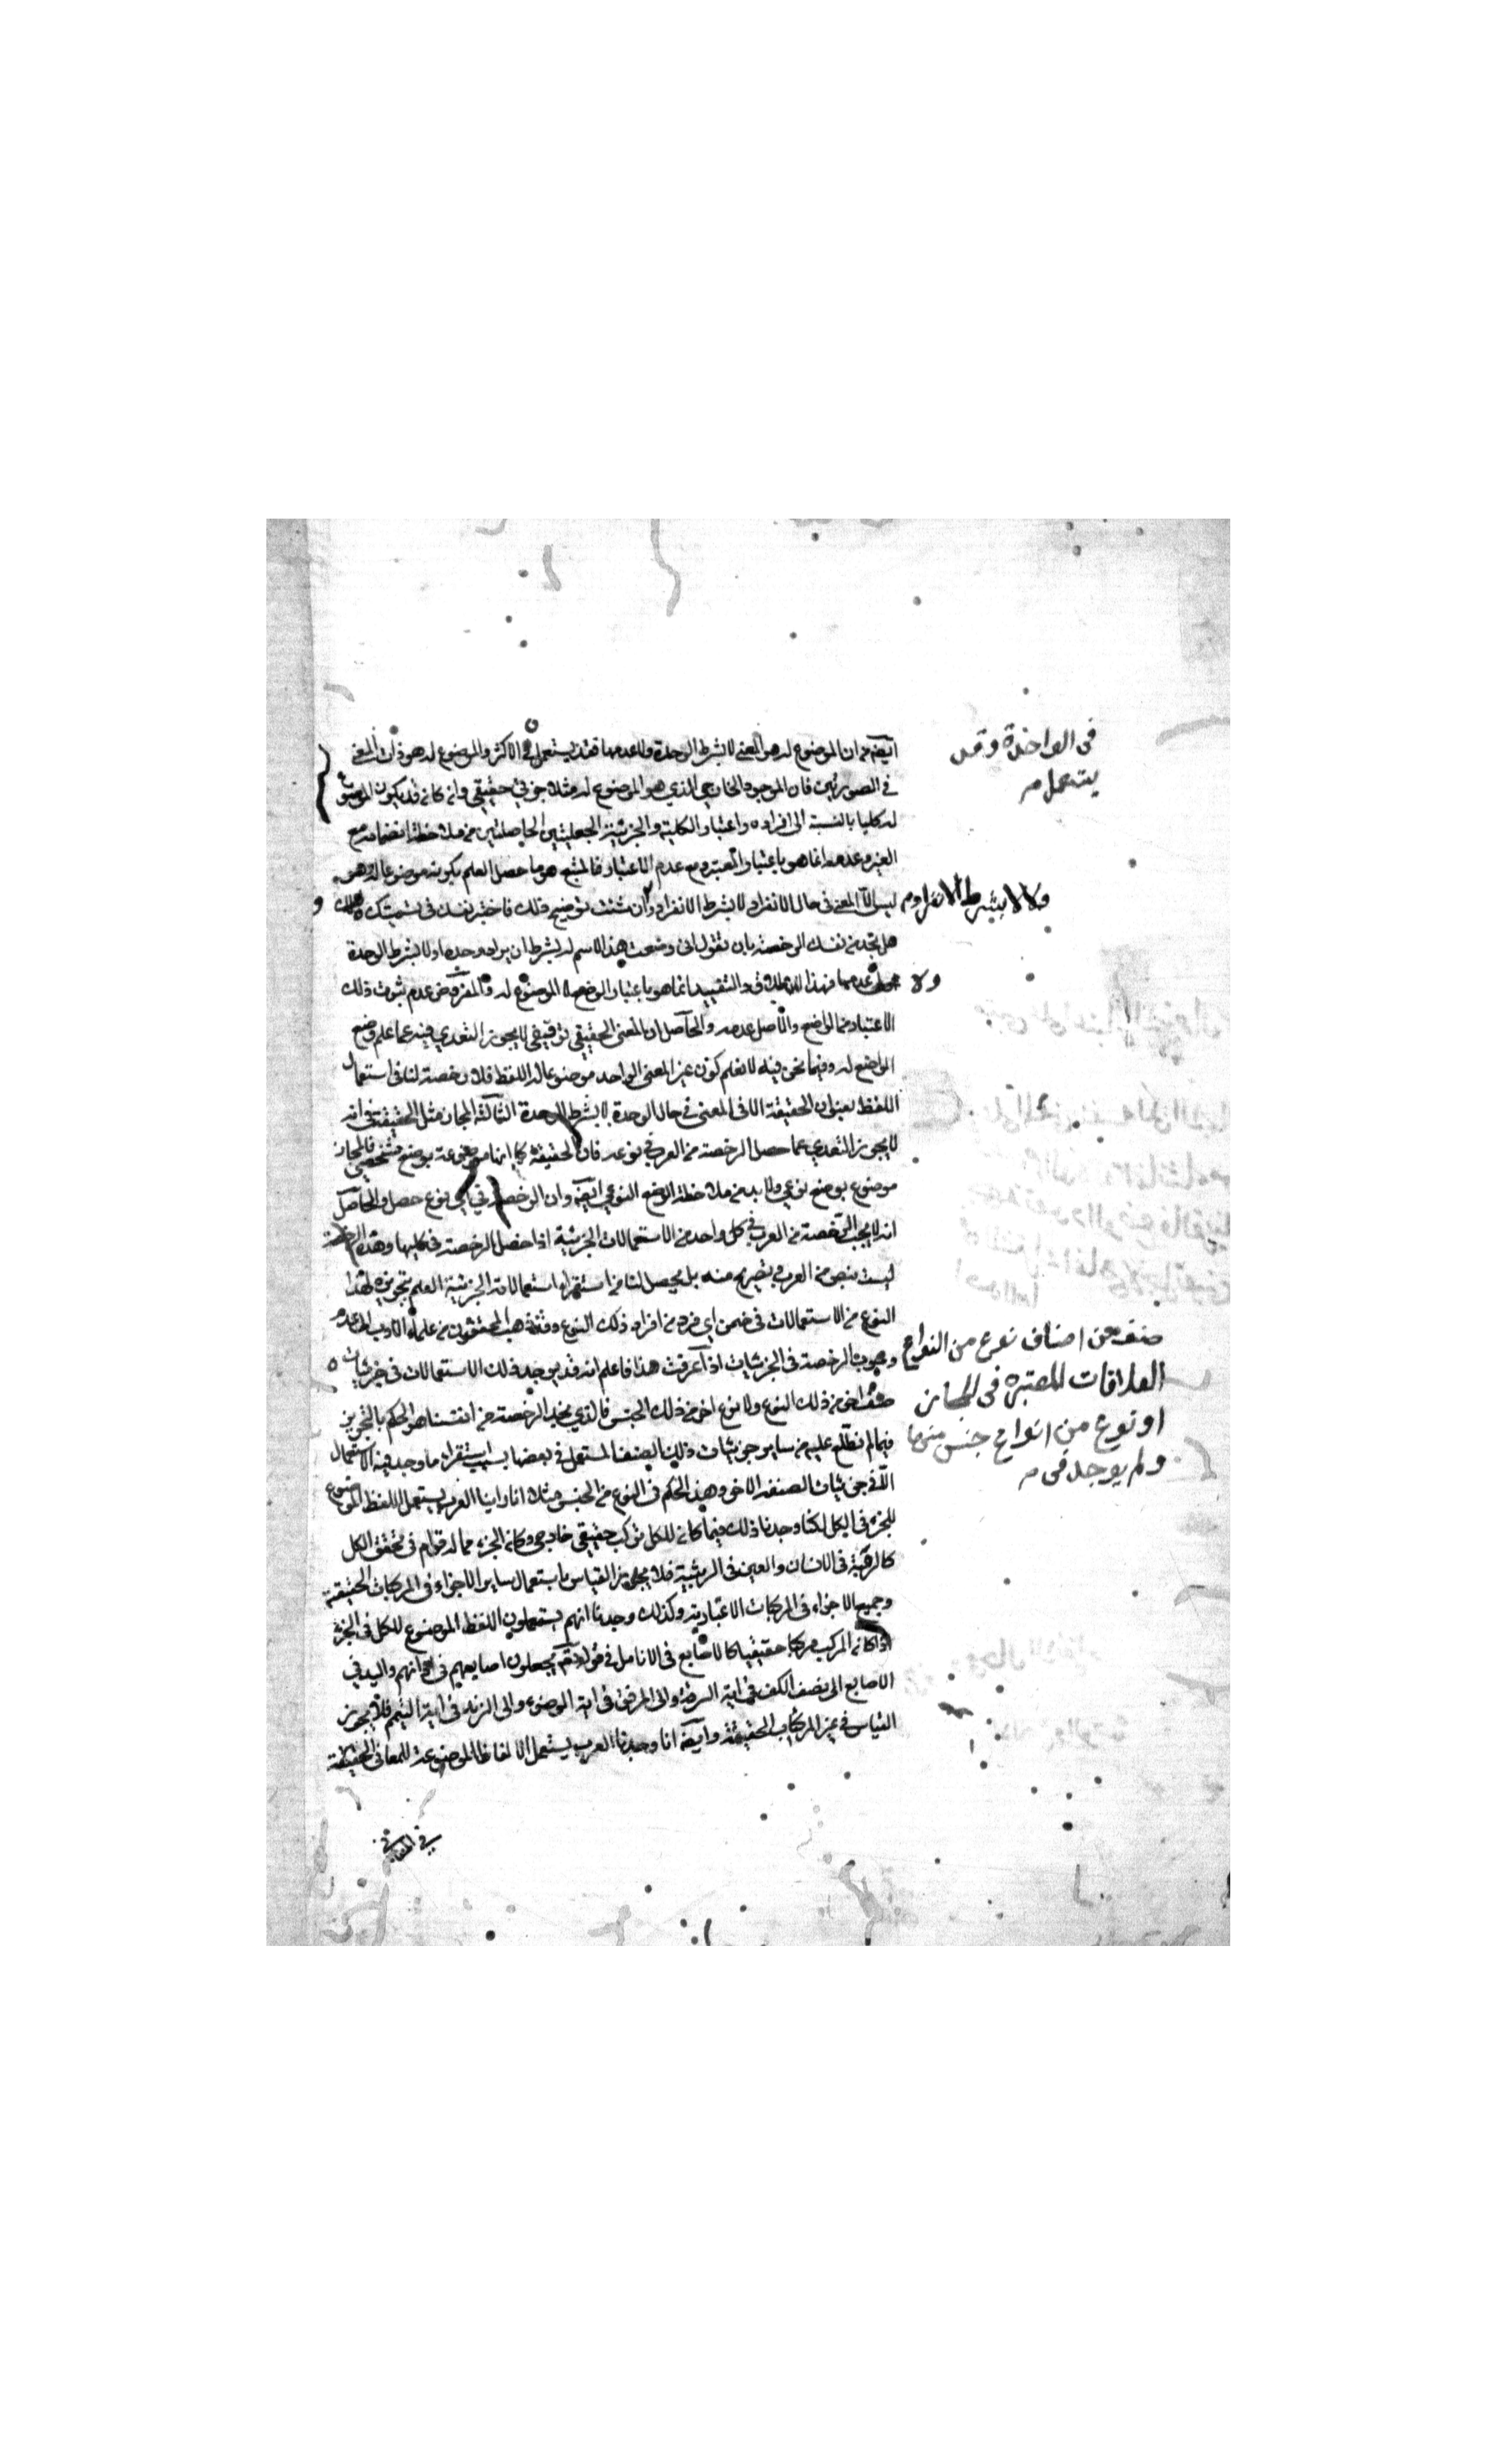 ايضم من ان الموضوع له هو المعنى لا بشرط الوحدة ولا عدمها فقد يستعمل في الاكثر والموضوع له هو ذلك المعنى
في الصورتين فان الموجود الخارجي الذي هو الموضوع له مثلا جزئي حقيقي وان كان قد يكون الموضوع
له كليا بالنسبة الى افراده واعتبار الكلية والجزئية الجعليتين الحاصلتين من ملاحظة انضمامه مع
الغير وعدمه انما هو باعتبار المعتبر ومع عدم الاعتبار فالمتبع هو ما حصل العلم بكونه موضوعا له وهو
ليس الا المعنى في حال الانفراد لا بشرط الانفراد وان شئت توضيح ذلك فاختبر نفسك في تسميتك ولدك
هل تجد من نفسك الرخصة بان تقول اني وضعت هذا الاسم له بشرط ان يراد وحده او لا بشرط الوحدة
ولا عدمها فهذا الاطلاق والتقييد انما هو باعتبار الوضع لا الموضوع له والمفروض عدم ثبوت ذلك
الاعتبار من الواضع والاصل عدمه والحاصل ان المعنى الحقيقي توقيفي لا يجوز التعدي فيه عما علم وضع
الواضع له وفيما نحن فيه لا نعلم كون غير المعنى الواحد موضوعا له اللفظ فلا رخصة لنا في استعمال
اللفظ بعنوان الحقيقة الا في المعنى في حال الوحدة لا بشرط الوحدة الثالثة المجاز مثل الحقيقة في انه
لا يجوز التعدي عما حصل الرخصة من العرب في نوعه فان الحقيقة كما انها موضوعة بوضع شخصي فالمجاز
موضوع بوضع نوعي ولا بد من ملاحظة الوضع النوعي ايضم وان الرخصة في اي نوع حصل والحاصل
انه لا يجب الرخصة من العرب في كل واحد من الاستعمالات الجزئية اذا حصل الرخصة في كليها وهذه الرخصة
ليست بنص من العرب بتصريح منه بل يحصل لنا من استقراء استعمالاته الجزئية العلم بتجويزه لهذا
النوع من الاستعمالات في ضمن اي فرد من افراد ذلك النوع وقد ذهب المحققون من علماء الادب الى عدم
وجوب الرخصة في الجزئيات اذا عرفت هذا فاعلم انه قد يوجد تلك الاستعمالات في جزئيات
صنف اخر من ذلك النوع ولا نوع اخر من ذلك الجنس فالذي نجد الرخصة من انفسنا هو الحكم بالتجويز
فيما لم نطلع عليه من ساير جزئيات ذلك الصنف المستعمل في بعضها بسبب استقراء ما وجد فيه الاستعمال
لا في جزئيات الصنف الاخر وهذا الحكم في النوع من الجنس مثلا انا راينا العرب يستعمل اللفظ الموضوع
للجزء في الكل لكنا وجدنا ذلك فيما كان للكل تركب حقيقي خارجي وكان الجزء مما له قوام في تحقق الكل
كالرقبة في الانسان والعين في الربيئة فلا يجوز القياس باستعمال ساير الاجزاء في المركبات الحقيقية
وجميع الاجزاء في المركبات الاعتبارية وكذلك وجدنا انهم يستعملون اللفظ الموضوع للكل في الجزء
اذا كان المركب مركبا حقيقيا كالاصابع في الانامل في قوله تعم يجعلون اصابعهم في اذانهم واليد في
الاصابع الى نصف الكف في اية السرقة والى المرفق في اية الوضوء والى الزند في اية التيمم فلا يجوز
القياس في غير المركبات الحقيقية وايضم انا وجدنا العرب يستعمل الالفاظ الموضوعة للمعاني الحقيقية
في الواحد وقد
يستعمل م
ولا لا بشرط الانفراد م
صنف من اصناف نوع من انواع
العلاقات المعتبرة في المجاز
او نوع من انواع جنس منها
ولم يوجد في م